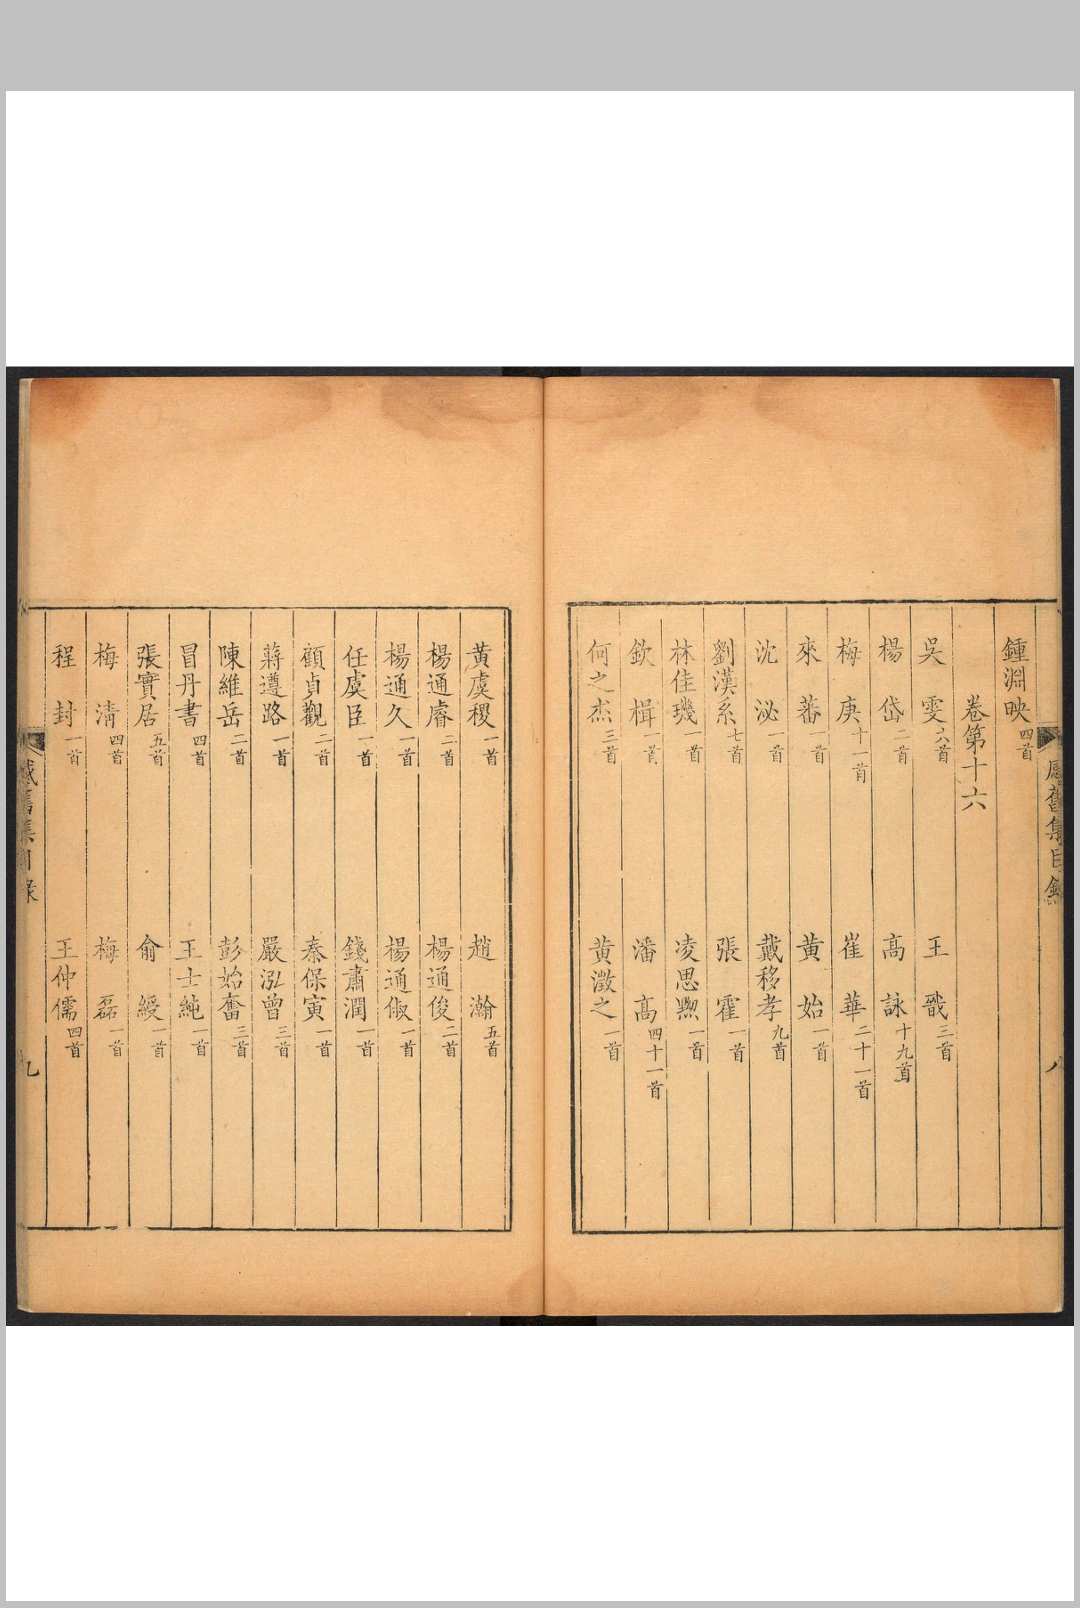 感舊集目錄 八
鍾淵映四首
卷第十六
吳 雯六首 王 戩三首
楊 岱二首 高 詠十九首
梅 庚十一首 崔 華二十一首
來 蕃一首 黃 始一首
沈 泌一首 戴移孝九首
劉漢系七首 張 霍一首
林佳璣一首 凌思㷀一首
欽 楫一首 潘 高四十一首
何之杰三首 黃澂之一首
黃虞稷一首 趙 瀚五首
楊通睿二首 楊通俊二首
楊通久一首 楊通俶一首
任虞臣一首 錢肅潤一首
顧貞觀二首 秦保寅一首
蔣遵路一首 嚴泓曾三首
陳維岳二首 彭始奮三首
冒丹書四首 王士純一首
張實居五首 俞 綬一首
梅 清四首 梅 磊一首
程 封一首 王仲儒四首
感舊集目錄 九